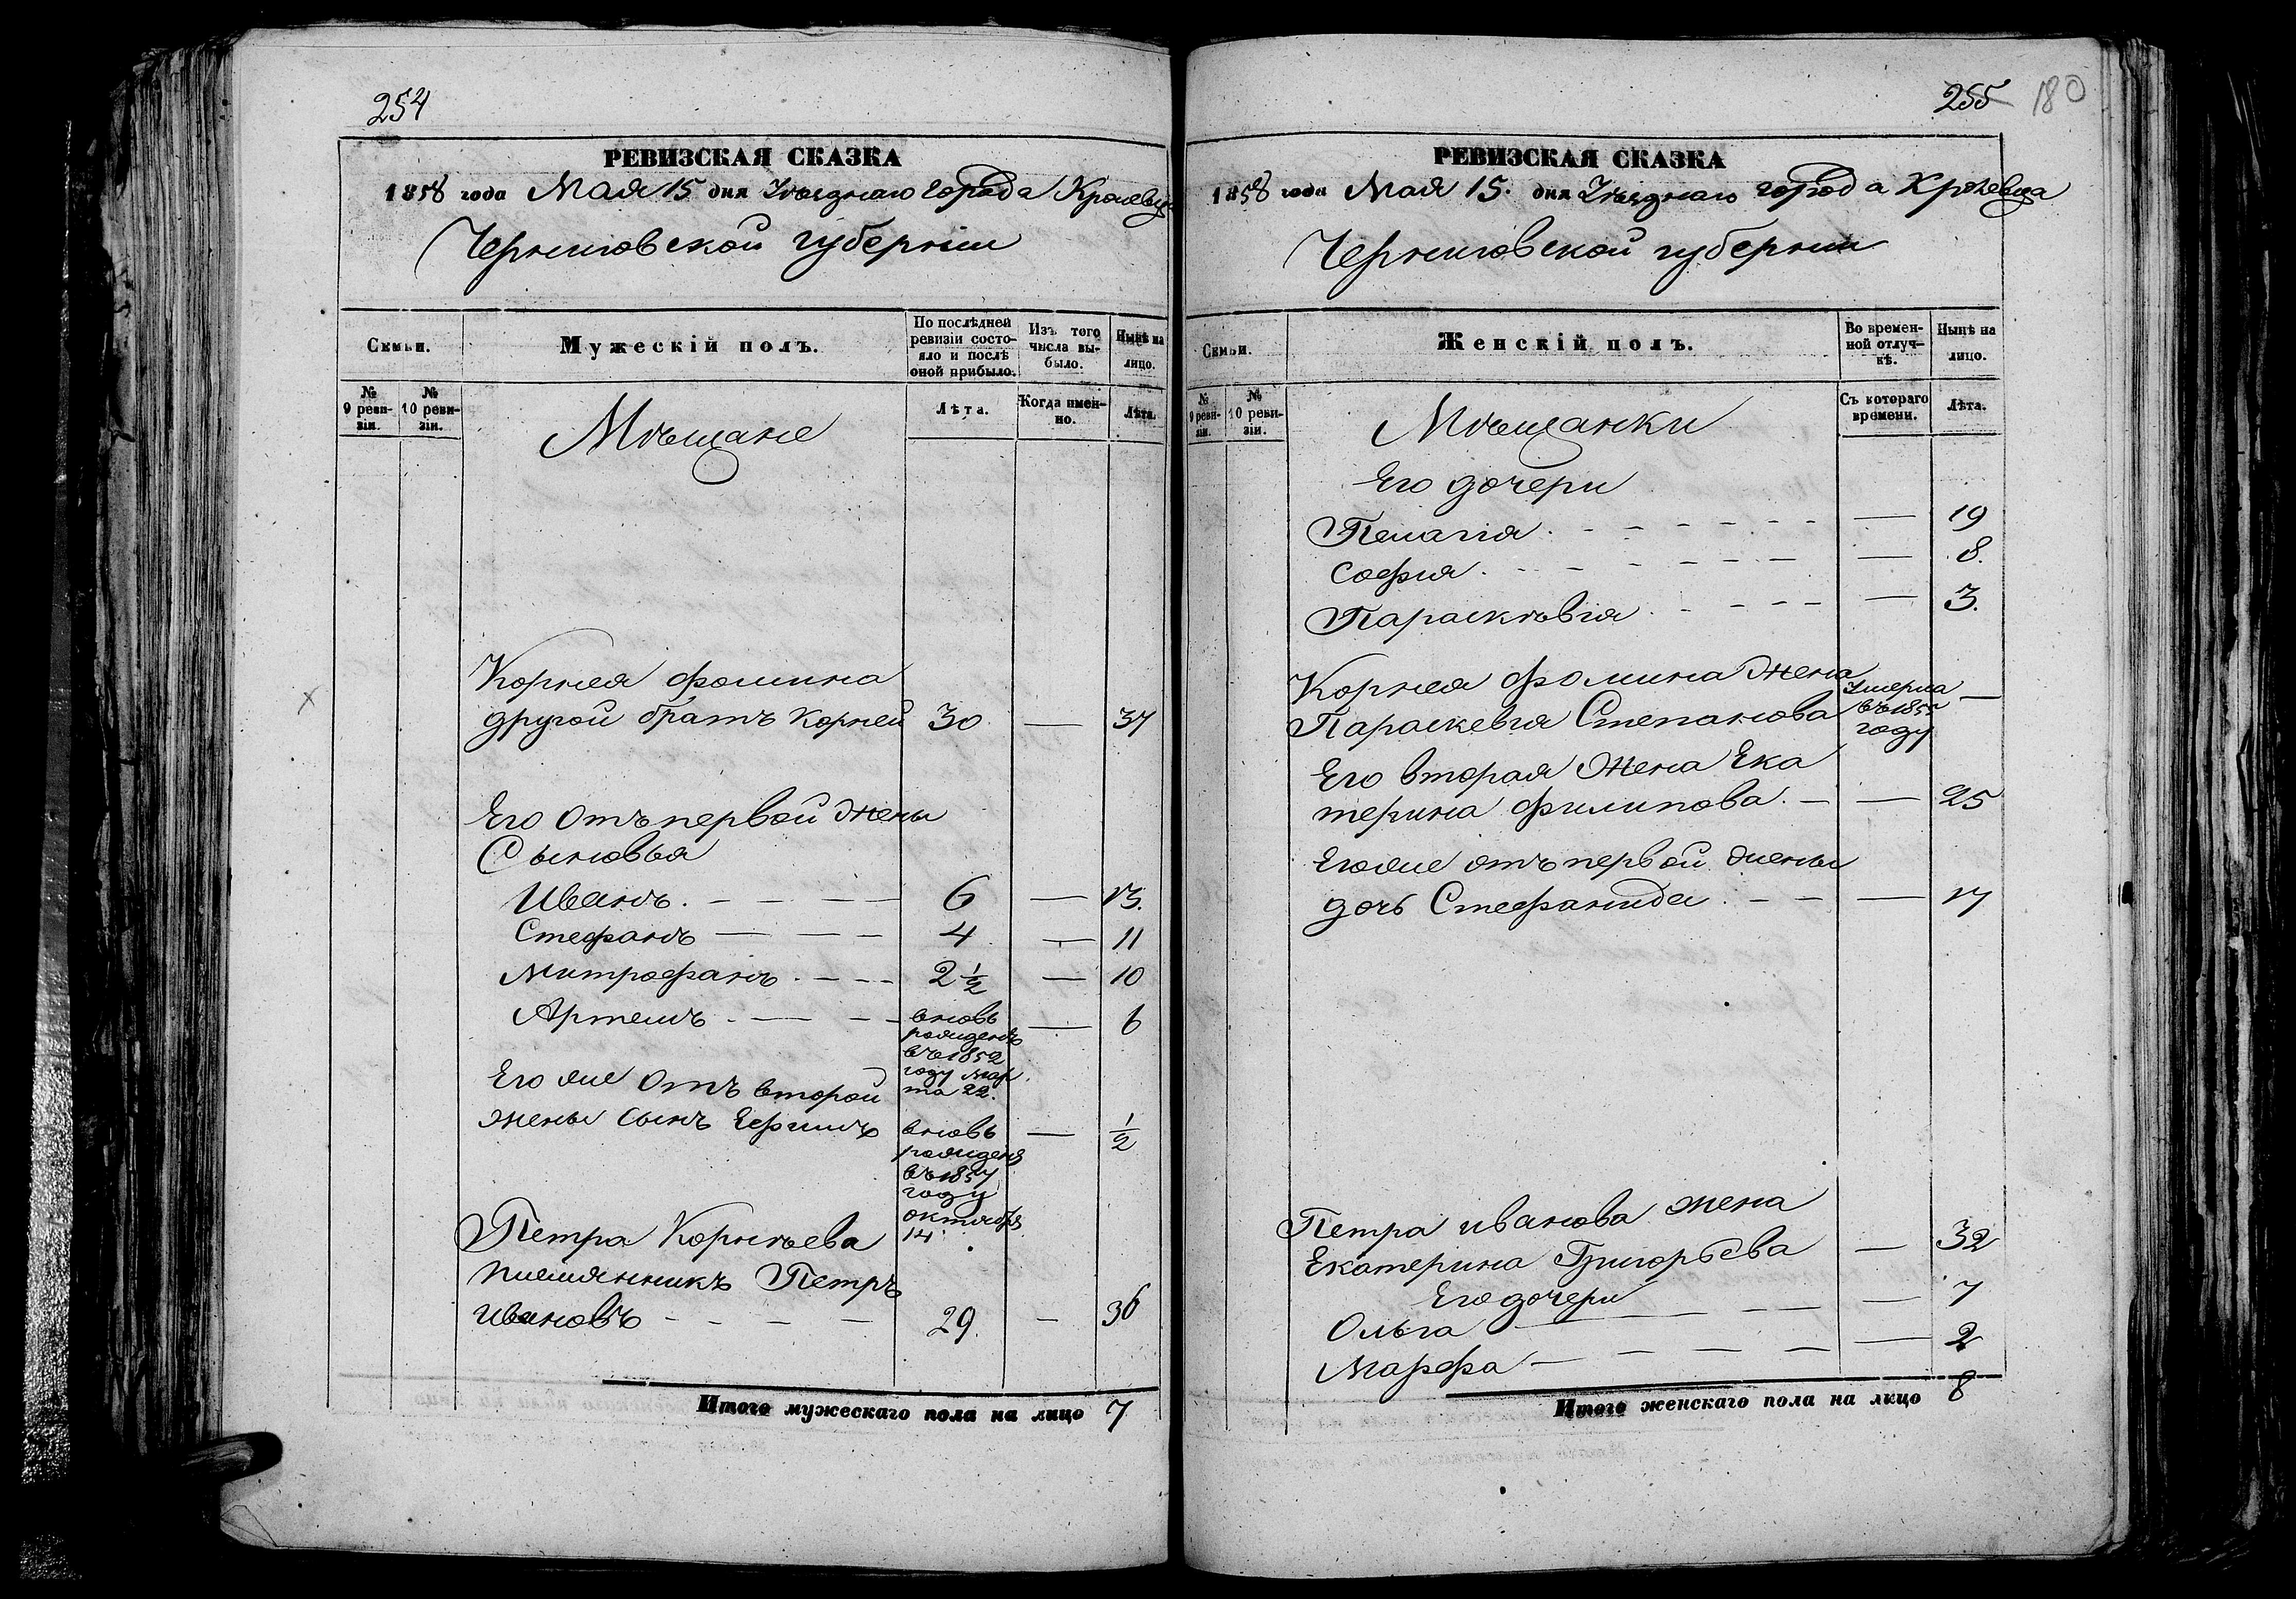 254
РЕВИЗСКАЯ СКАЗКА
1858 года Мая 15 дня Уѣзднаго города Кролевца
Черниговской губерніи
Семьи.
Мужескій полъ.
По послѣдней ревизіи состояло и послѣ оной прибыло.
Изъ того числа выбыло.
Нынѣ на лицо.
№ 9 ревизіи.
№ 10 ревизіи.
Лѣта.
Когда именно.
Лѣта.
Мѣщане
Корнея Фомина
другой братъ Корней 30 — 37
Его отъ первой жены
Сыновья
Иванъ. — 6 — 13.
Стефанъ — 4 — 11
Митрофанъ. — 2 1/2 — 10
Артемъ — вновь рожденъ въ 1852 году марта 22. — 6
Его же отъ второй
жены сынъ Ефимъ вновь рожденъ въ 1857 году октября 14 — 1/2
Петра Корнѣева
племянникъ Петръ
Ивановъ — 29. — 36
Итого мужескаго пола на лицо 7
255
180
РЕВИЗСКАЯ СКАЗКА
1858 года Мая 15. дня Уѣзднаго города Кролевца
Черниговской губерніи
Семьи.
Женскій полъ.
Во временной отлучкѣ.
Нынѣ на лицо.
№ 9 ревизіи.
№ 10 ревизіи.
Съ котораго времени.
Лѣта.
Мѣщанки
Его дочери
Пелагія. — 19
София. — 8.
Параскѣвія — 3.
Корнея Фомина жена
Параскевия Степанова Умерла въ 1855 году —
Его вторая жена Ека
терина Филипова. — 25
Его же отъ первой жены
дочь Стефанида. — 17
Петра Иванова жена
Екатерина Григорьева — 32
Его дочери
Ольга — 7
Марфа — 2
Итого женскаго пола на лицо 8